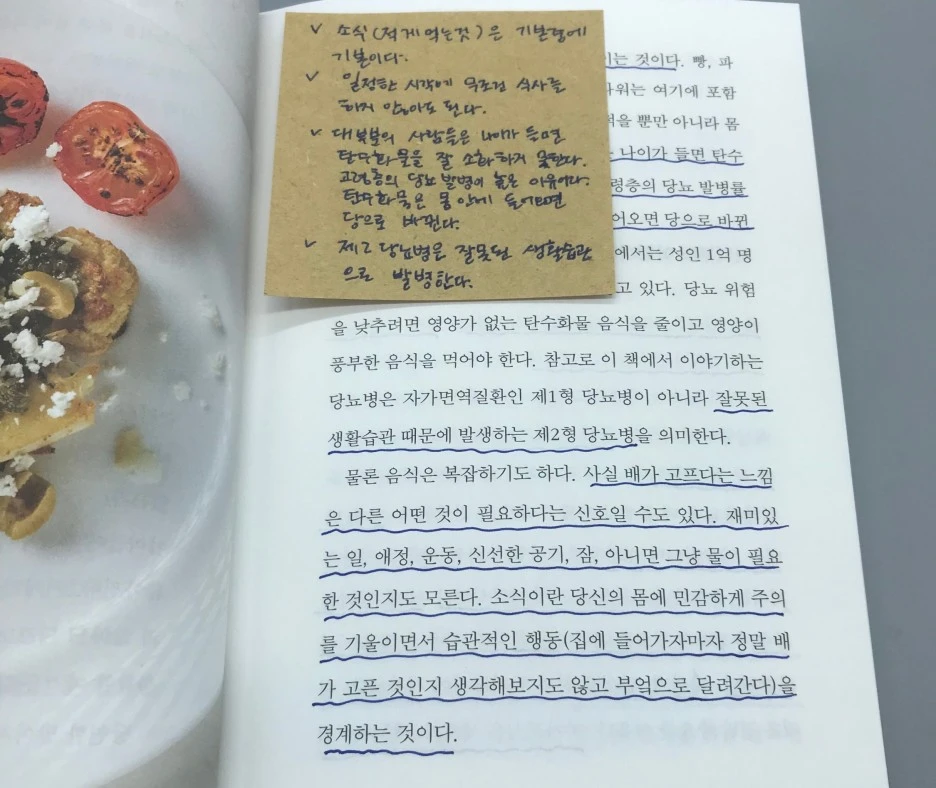 ✓ 소식(적게 먹는것)은 기본중에
기본이다.
✓ 일정한 시각에 무조건 식사를
하지 않아도 된다.
✓ 대부분의 사람들은 나이가 들면
탄수화물을 잘 소화하지 못한다.
고령층의 당뇨 발병이 높은 이유이다.
탄수화물은 몸 안에 들어오면
당으로 바뀐다.
✓ 제2 당뇨병은 잘못된 생활습관
으로 발병한다.
는 것이다. 빵, 파
여기에 포함
뿐만 아니라 몸
나이가 들면 탄수
령층의 당뇨 발병률
어오면 당으로 바뀐
에서는 성인 1억 명
고 있다. 당뇨 위험
을 낮추려면 영양가 없는 탄수화물 음식을 줄이고 영양이
풍부한 음식을 먹어야 한다. 참고로 이 책에서 이야기하는
당뇨병은 자가면역질환인 제1형 당뇨병이 아니라 잘못된
생활습관 때문에 발생하는 제2형 당뇨병을 의미한다.
물론 음식은 복잡하기도 하다. 사실 배가 고프다는 느낌
은 다른 어떤 것이 필요하다는 신호일 수도 있다. 재미있
는 일, 애정, 운동, 신선한 공기, 잠, 아니면 그냥 물이 필요
한 것인지도 모른다. 소식이란 당신의 몸에 민감하게 주의
를 기울이면서 습관적인 행동(집에 들어가자마자 정말 배
가 고픈 것인지 생각해보지도 않고 부엌으로 달려간다)을
경계하는 것이다.